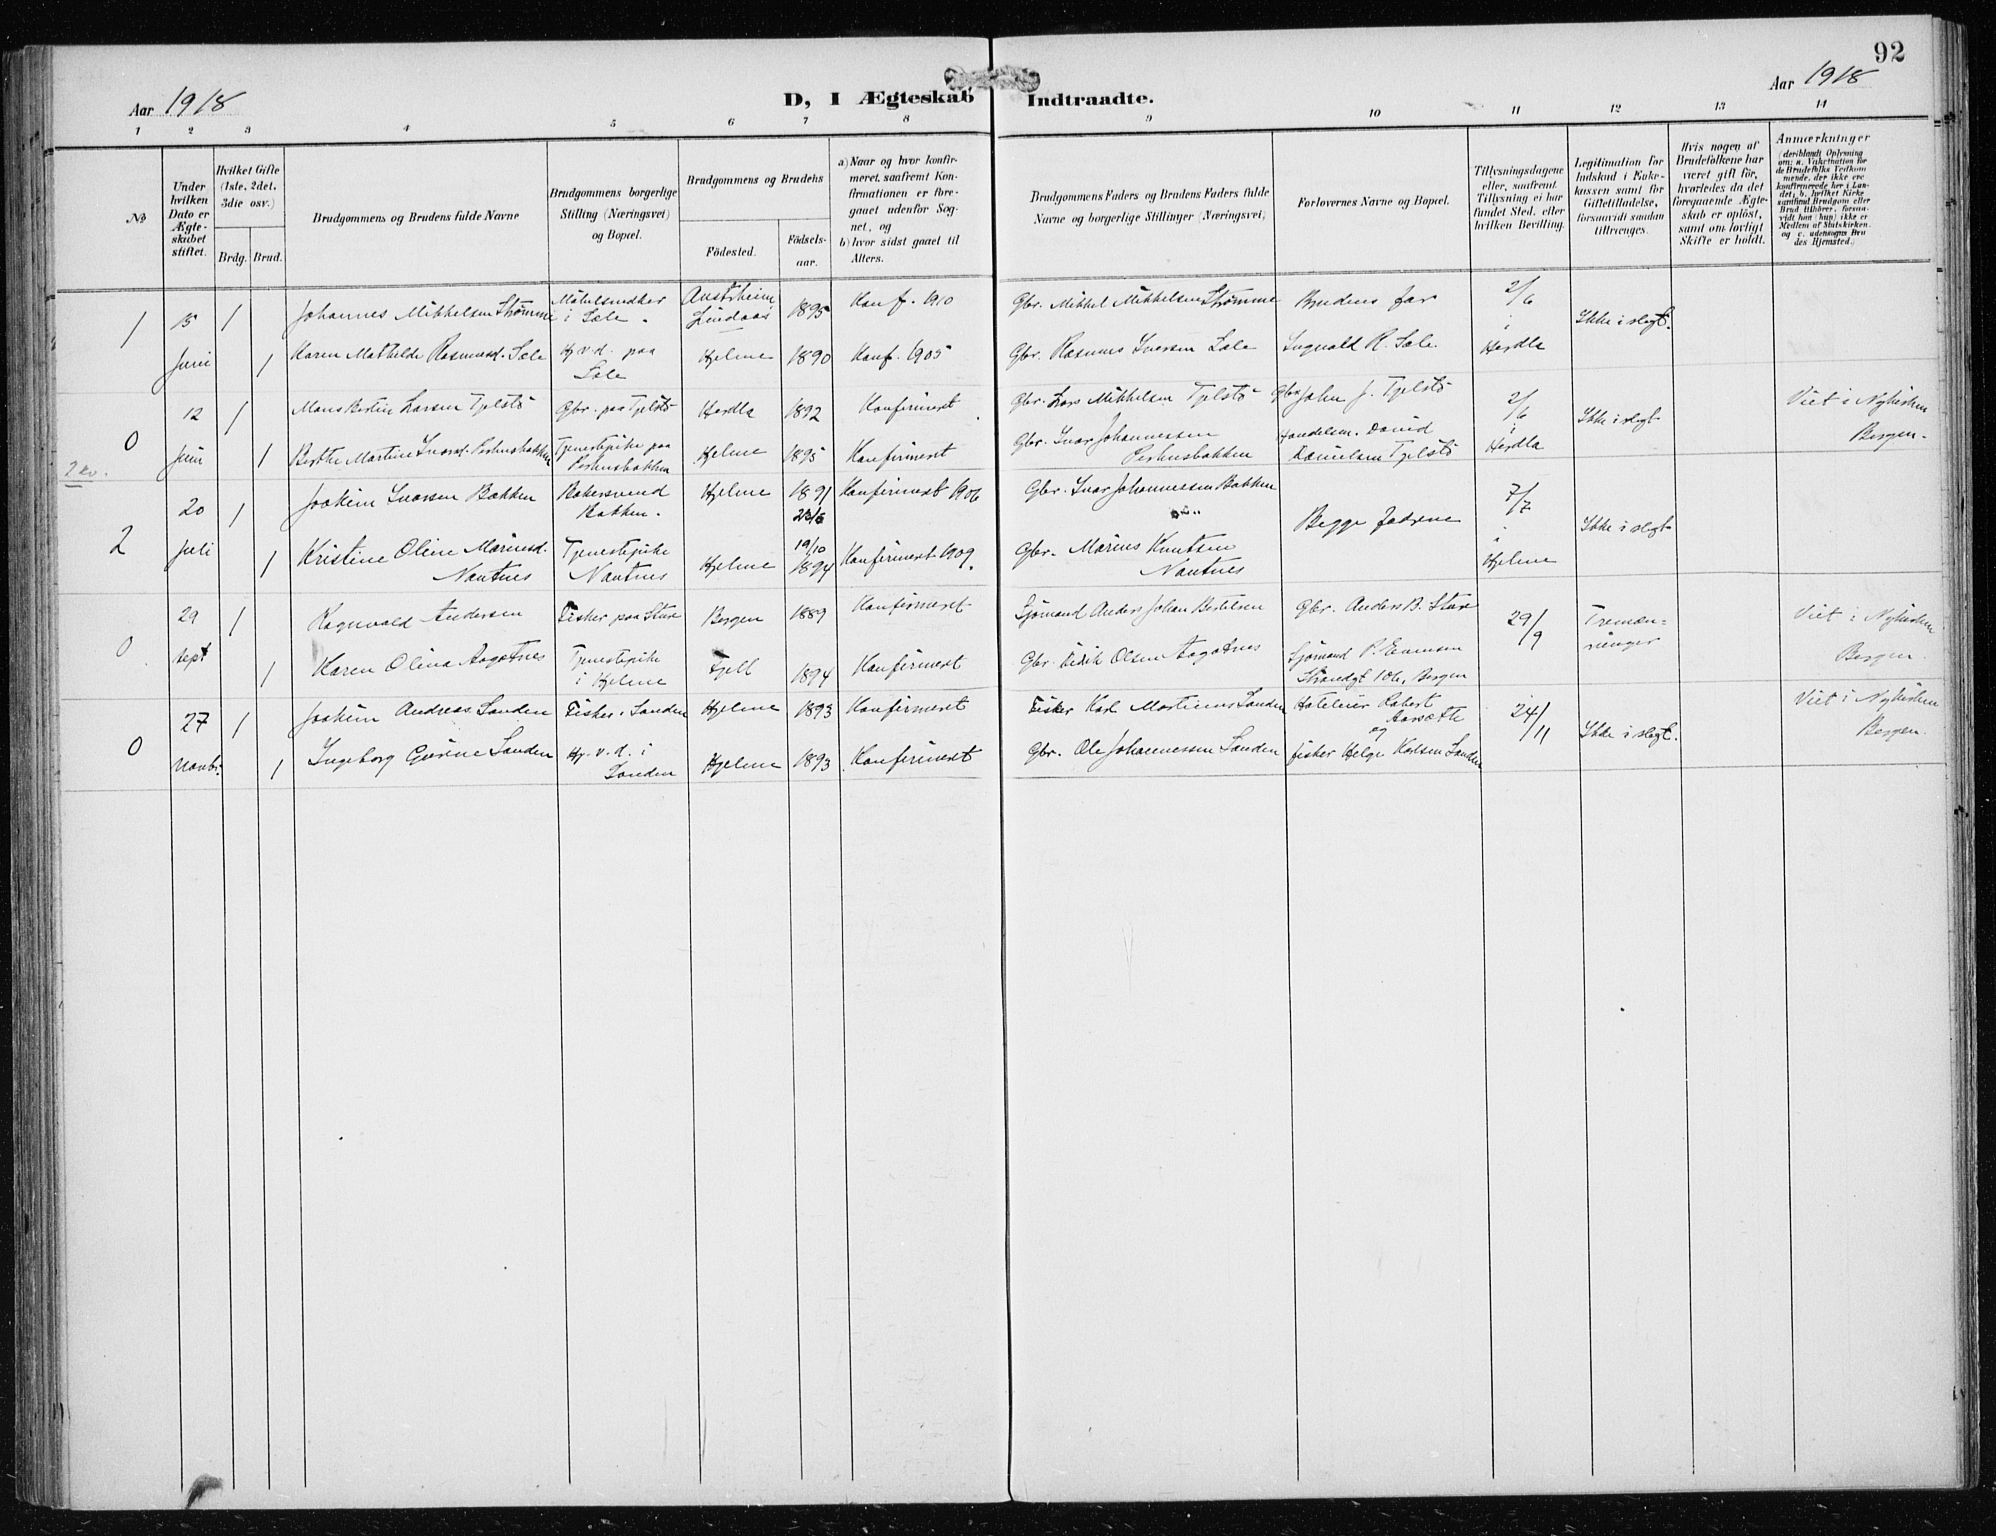 92
Aar 1918
D, I Ægteskab Indtraadte.
Aar 1918
1 2 3 4 5 6 7 8 9 10 11 12 13 14
No
Under hvilken Dato er Ægteskabet stiftet.
Hvilket Gifte (1ste, 2det, 3die osv.)
Brdg. Brud.
Brudgommens og Brudens fulde Navne
Brudgommens borgerlige Stilling (Næringsvei) og Bopæl.
Brudgommens og Brudens
Födested.
Födselsaar.
a) Naar og hvor konfirmeret, saafremt Konfirmationen er foregaaet udenfor Sognet, og
b) hvor sidst gaaet til Alters.
Brudgommens Faders og Brudens Faders fulde Navne og borgerlige Stillinger (Næringsvei)
Forlovernes Navne og Bopæl.
Tillysningsdagene eller, saafremt Tillysning ei har fundet Sted, efter hvilken Bevilling.
Legitimation for Indskud i Enkekassen samt for Giftetilladelse, forsaavidt saadan tiltrænges.
Hvis nogen af Brudefolkene har været gift för, hvorledes da det foregaaende Ægteskab er oplöst, samt om lovligt Skifte er holdt.
Anmærkninger
1 15 1 Johannes Mikkelsen Strømme Möbelsnedker i Sæle. Austrheim Lindaas 1895 Konf. 1910 Gbr. Mikkel Mikkelsen Strømme Brudens far 2/6 i Ikke i slegt.
Juni 1 Karen Mathilde Rasmusd. Sæle Hj.v.d. paa Sæle Hjelme 1890 Konf. 1905 Gbr. Rasmus Iversen Sæle Ingvald R. Sæle. Herdla
0 12 1 Mons Bertin Larsen Tjelstö Gbr. paa Tjelstö Herdla 1892 Konfirmert Gbr. Lars Mikkelsen Tjelstö Gbr. John J. Tjelstö 2/6 i Ikke i slegt Viet i Nykirken
2 kv. Juni 1 Berthe Martine Ivarsd. Perhusbakken Tjenestepike paa Perhusbakken Hjelme 1895 Konfirmert Gbr. Ivar Johannessen Perhusbakken Handelsm. David Danielsen Tjelstö Herdla Bergen.
2 20 1 Joakim Ivarsen Bakken Bakersvend Bakken. Hjelme 1891 23/5 Konfirmert 1906 Gbr. Ivar Johannessen Bakken Begge fædrene 7/7 i Ikke i slegt
Juli 1 Kristine Oline Marinsd. Nautnes Tjenestepike Nautnes Hjelme 19/10 1894 Konfirmert 1909. Gbr. Marius Knutsen Nautnes Hjelme
0 29 1 Ragnvald Andersen Fisker paa Sture Bergen 1889 Konfirmert Sjømand Anders Johan Bertelsen Gbr. Anders B. Sture 29/9 Tremænninger Viet i Nykirken
Sept 1 Karen Olina Aagotnes Tjenestepike i Hjelme Fjell 1894 Konfirmert Gbr. Olsen Aagotnes Sjømand P. Evensen Strandgt 106, Bergen Bergen.
0 27 1 Joakim Andreas Sanden Fisker i Sanden Hjelme 1893 Konfirmert Fisker Karl Martinus Sanden Hoteleier Robert Aarsæth 24/11 Ikke i slegt. Viet i Nykirken
Novbr. 1 Ingeborg Gurine Sanden Hj.v.d. i Sanden Hjelme 1893 Konfirmert Gbr. Ole Johannessen Sanden og fisker Helge Karlsen Sanden Bergen.